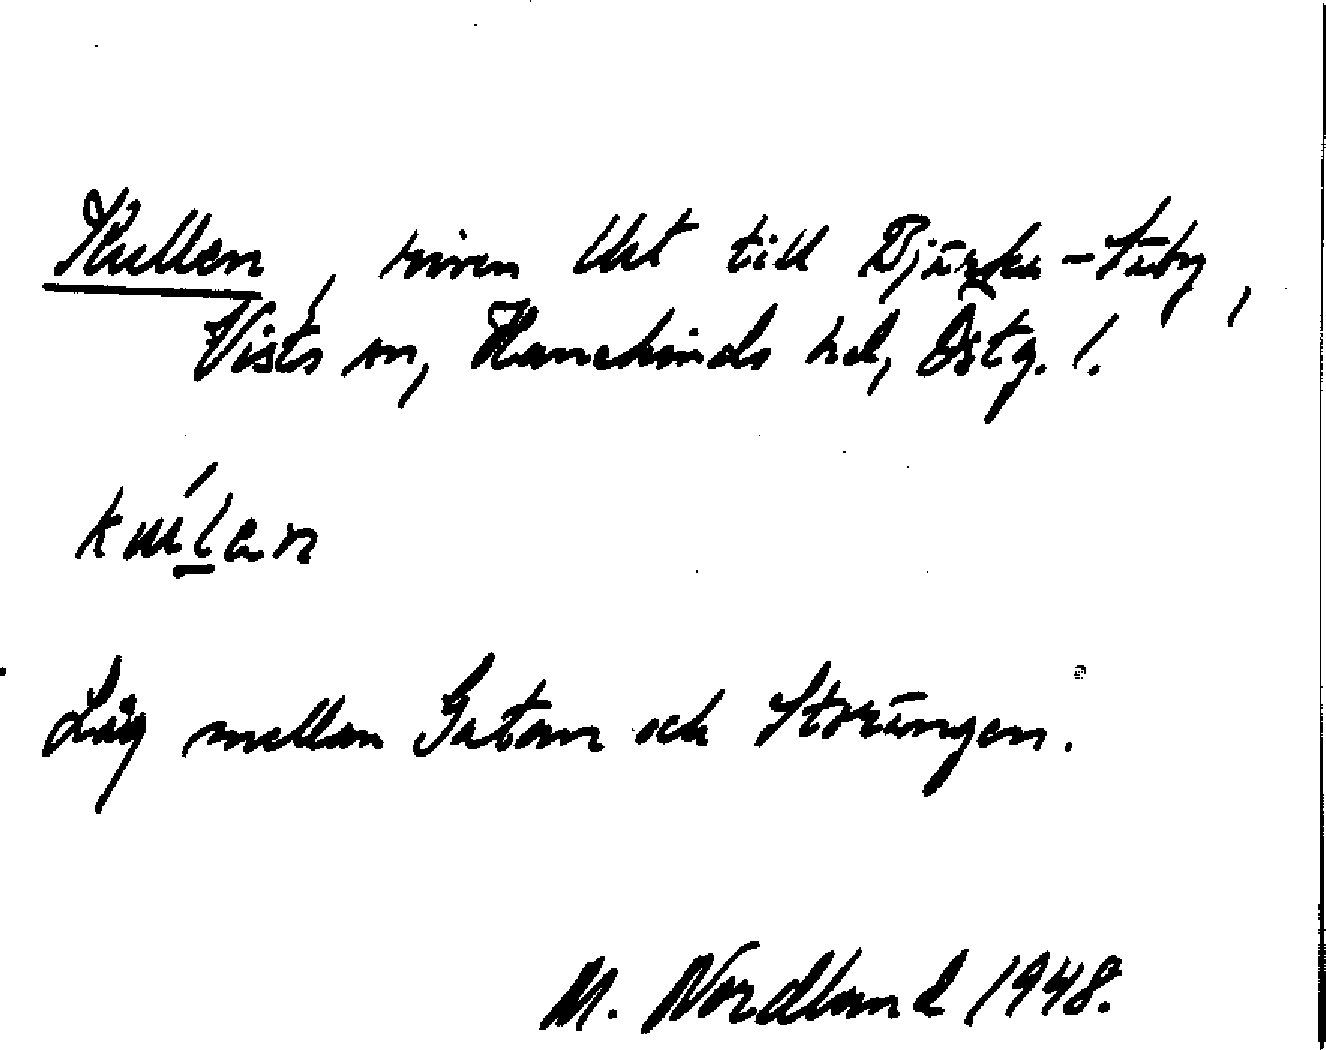 Kullen, riven lht till Bjärka-Säby,
Vists sn, Hanekinds hd, Östg. l.
kulen
Låg mellan Gatan och Storängen.
M. Nordland 1948.